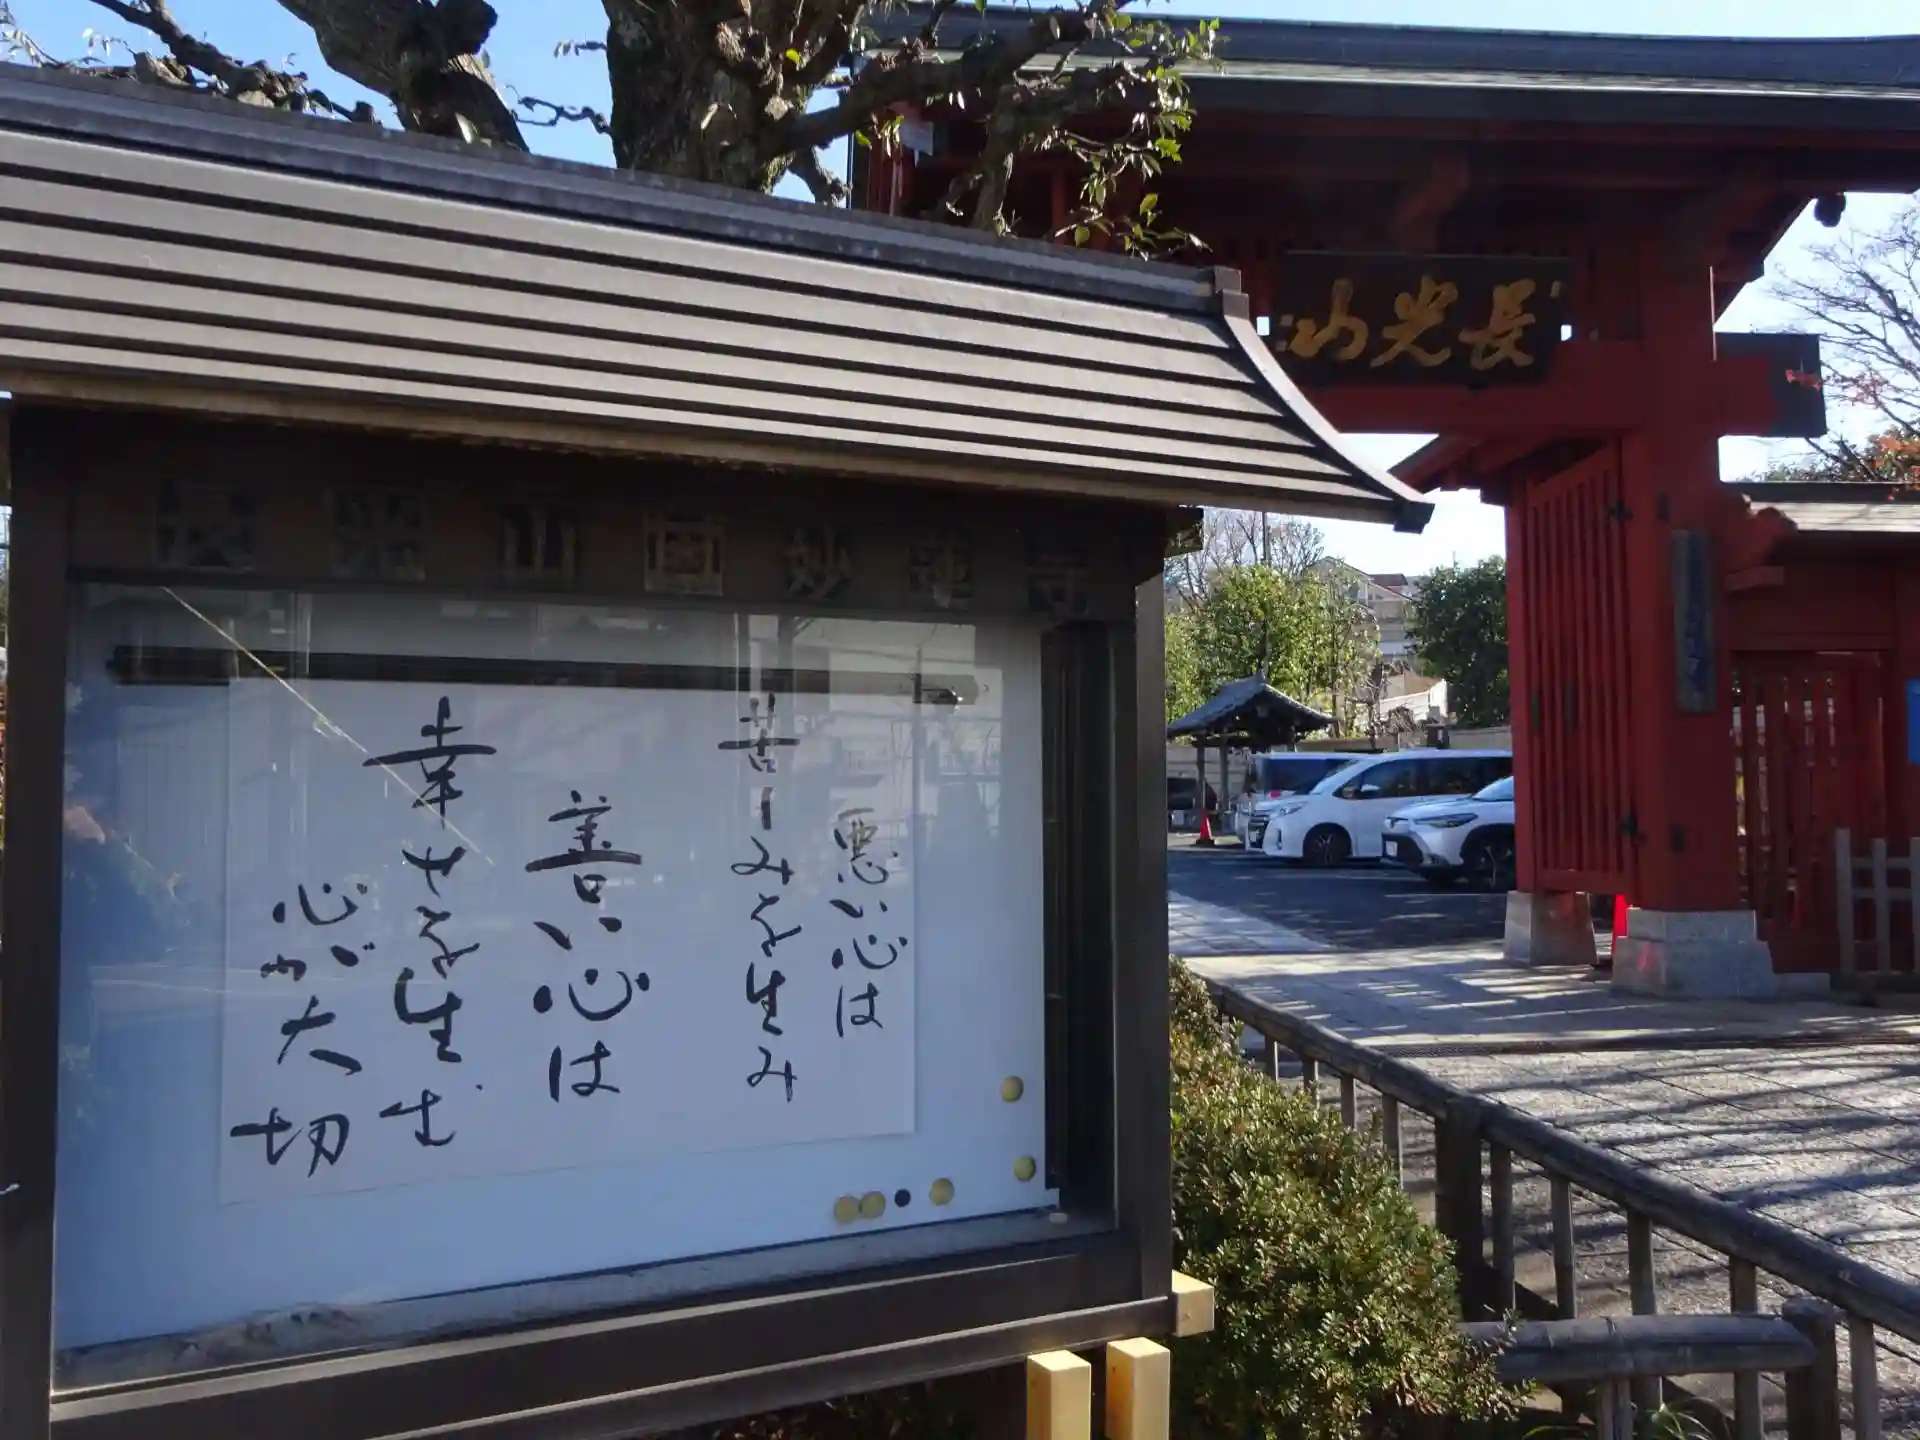 長光山
長光山 妙蓮寺
悪い心は
苦しみを生み
善い心は
幸せを生む
心が大切